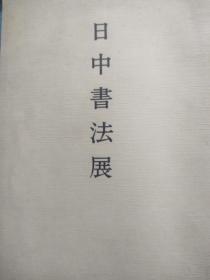 日中書法展